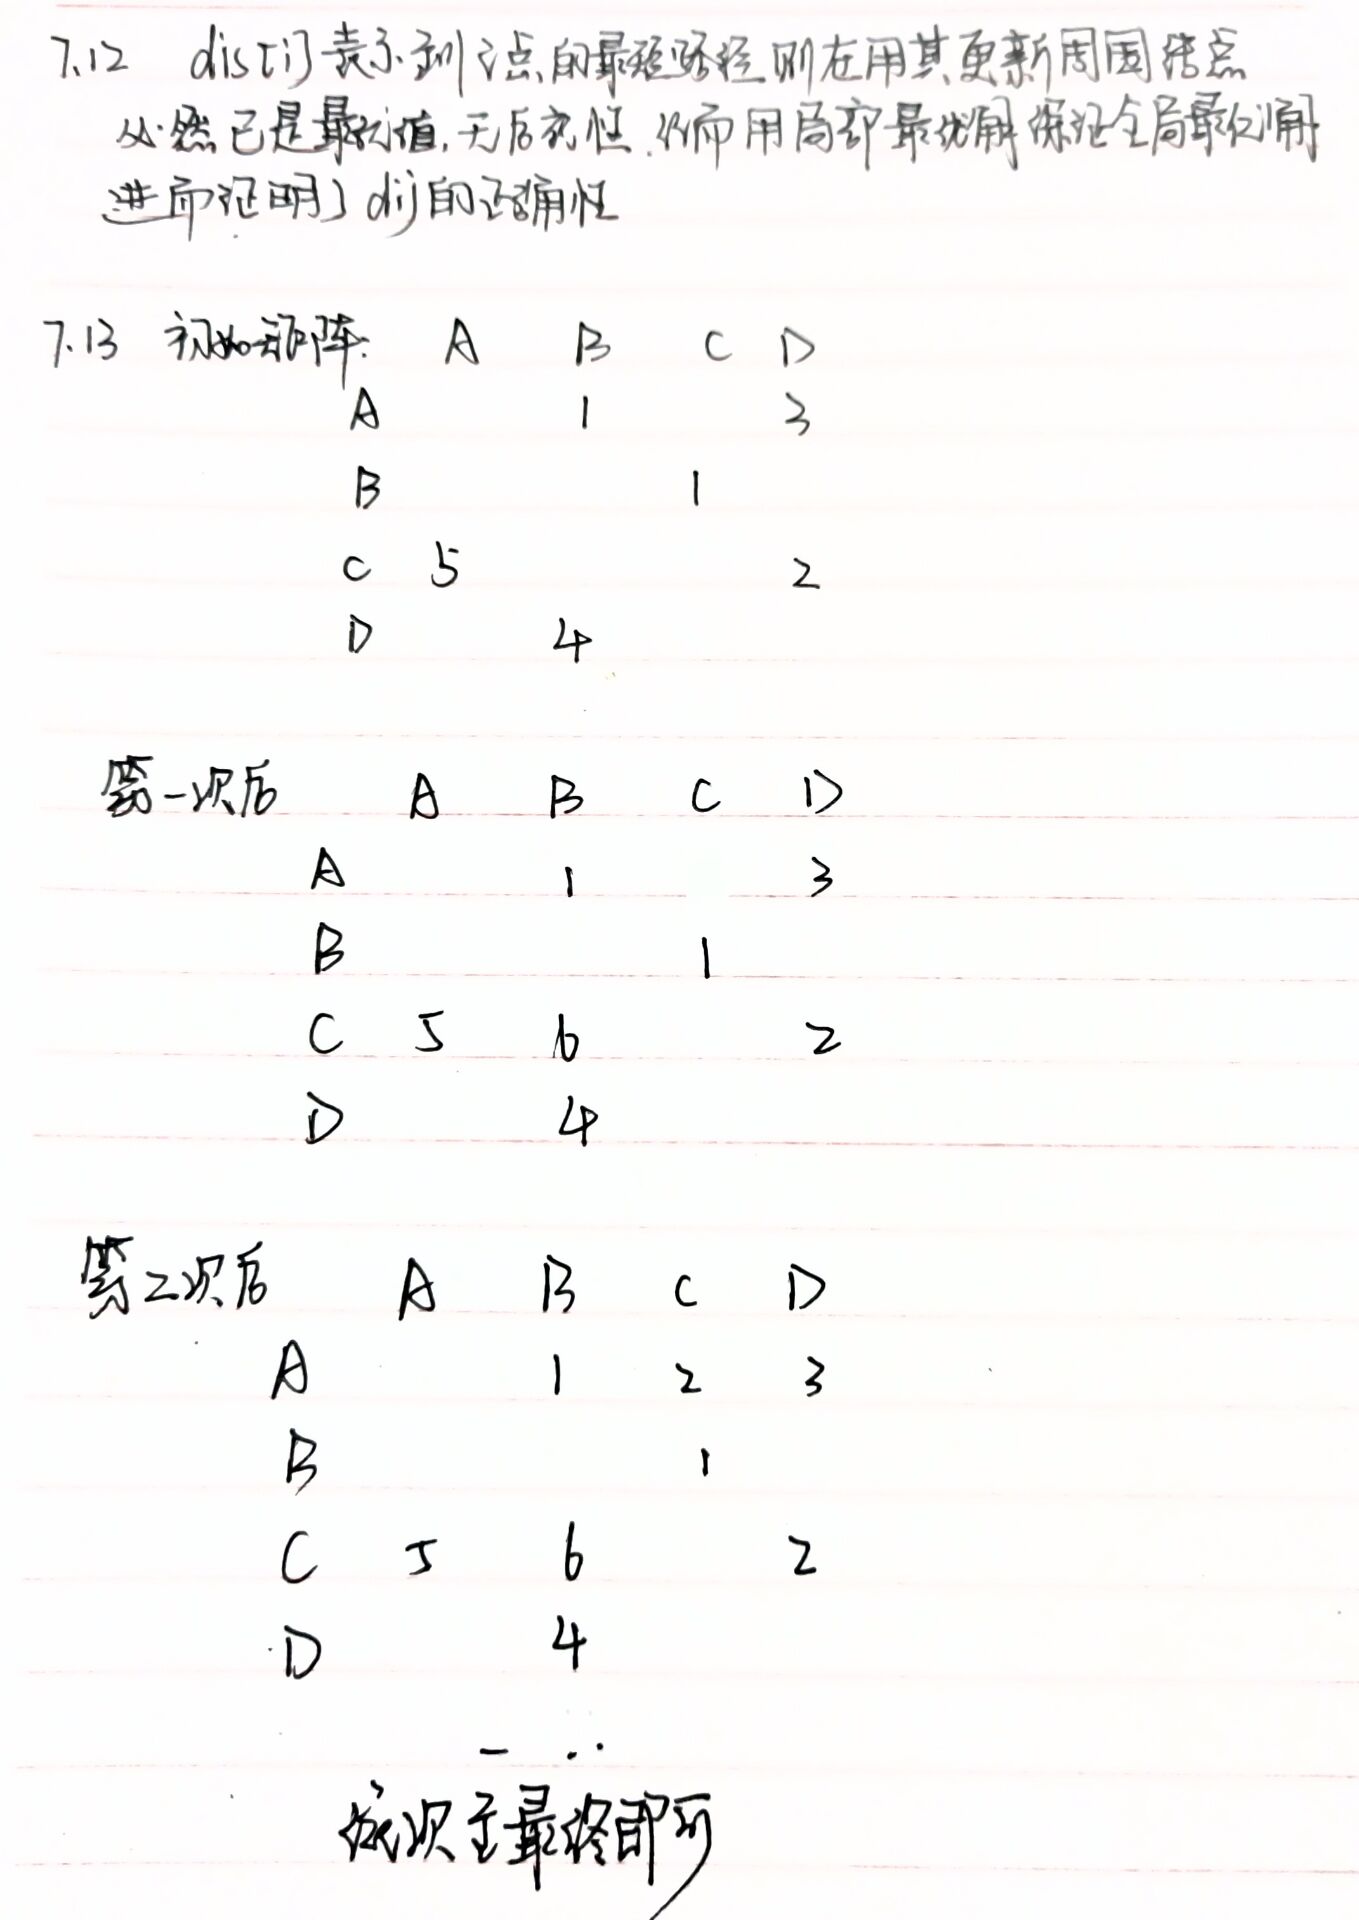 7.12 dis[i]表示到i点的最短路径则在用其更新周围结点
必然已是最优值,无后效性.从而用局部最优解保证全局最优解
进而证明了dij的正确性
7.13 初始矩阵: A B C D
A 1 3
B 1
C 5 2
D 4
第一次后 A B C D
A 1 3
B 1
C 5 6 2
D 4
第二次后 A B C D
A 1 2 3
B 1
C 5 6 2
D 4
依次至最终即可